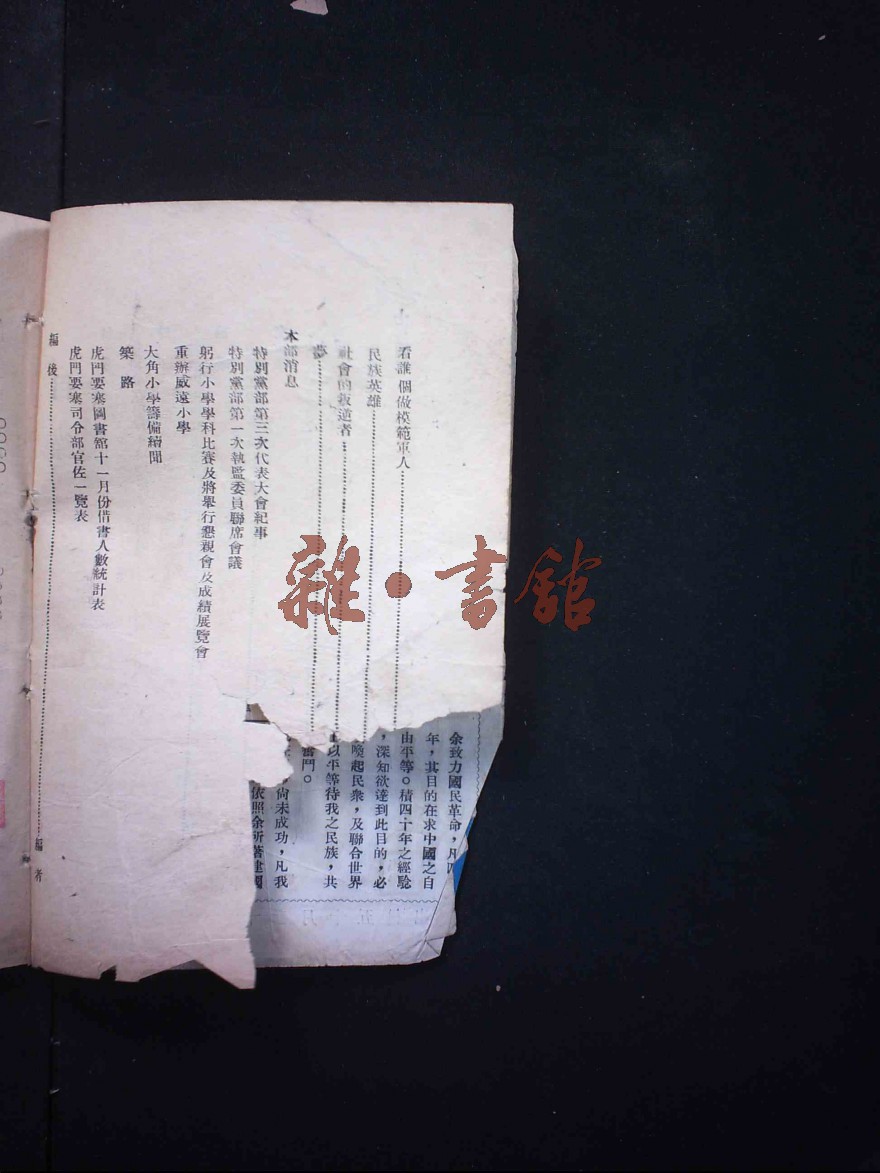 看誰個做模範軍人
民族英雄
社會的叛逆者
本部消息
特別黨部第三次代表大會紀事
特別黨部第一次執監委員聯席會議
躬行小學學科比賽及將舉行懇親會及成績展覽會
重辦威遠小學
大角小學籌備續聞
築路
虎門要塞圖書館十一月份借書人數統計表
虎門要塞司令部官佐一覽表
編後……編者
余致力國民革命,凡四
年,其目的在求中國之自
由平等。積四十年之經驗
,深知欲達到此目的,必
喚起民衆,及聯合世界
以平等待我之民族,共
奮鬥。
尚未成功,凡我
依照余所著建國
雜·書館